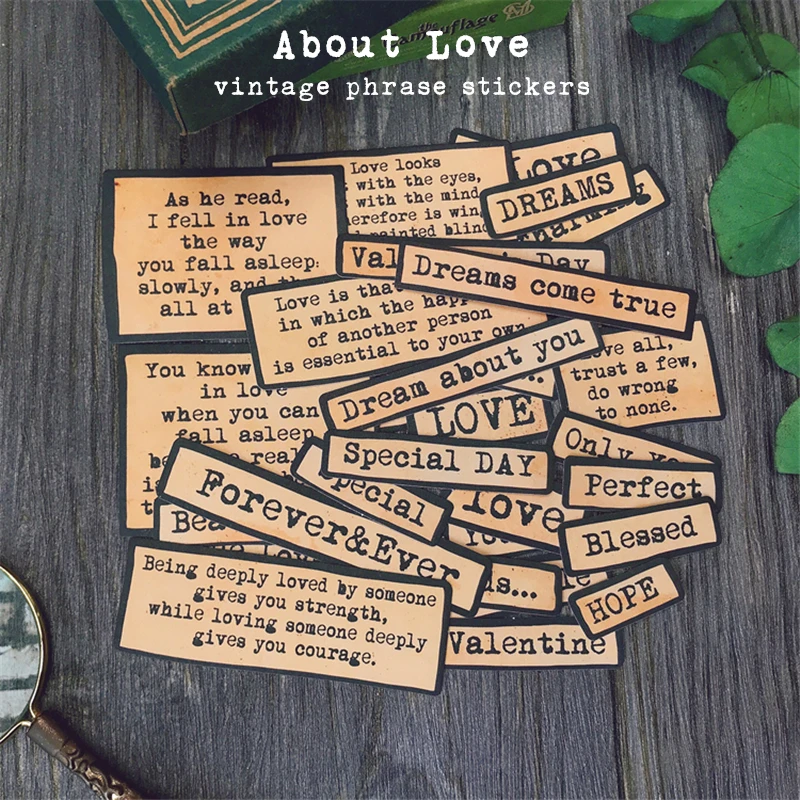 About Love
vintage phrase stickers
the
amouflage
As he read,
I fell in love
the way
you fall asleep:
slowly, and th
all at
Love looks
with the eyes,
with the mind
erefore is win
painted blind
Love
DREAMS
harming
Val
Day
Dreams come true
Love is that
in which the happ
of another person
is essential to your own
Dream about you
ove all,
trust a few,
do wrong
to none.
You know
in love
when you can
fall asleep
be real
is
t
LOVE
Special DAY
Only yo
Perfect
pecial
love
You
Blessed
Forever&Ever
Bea
ue Lov
is...
le
HOPE
Being deeply loved by someone
gives you strength,
while loving someone deeply
gives you courage.
Valentine